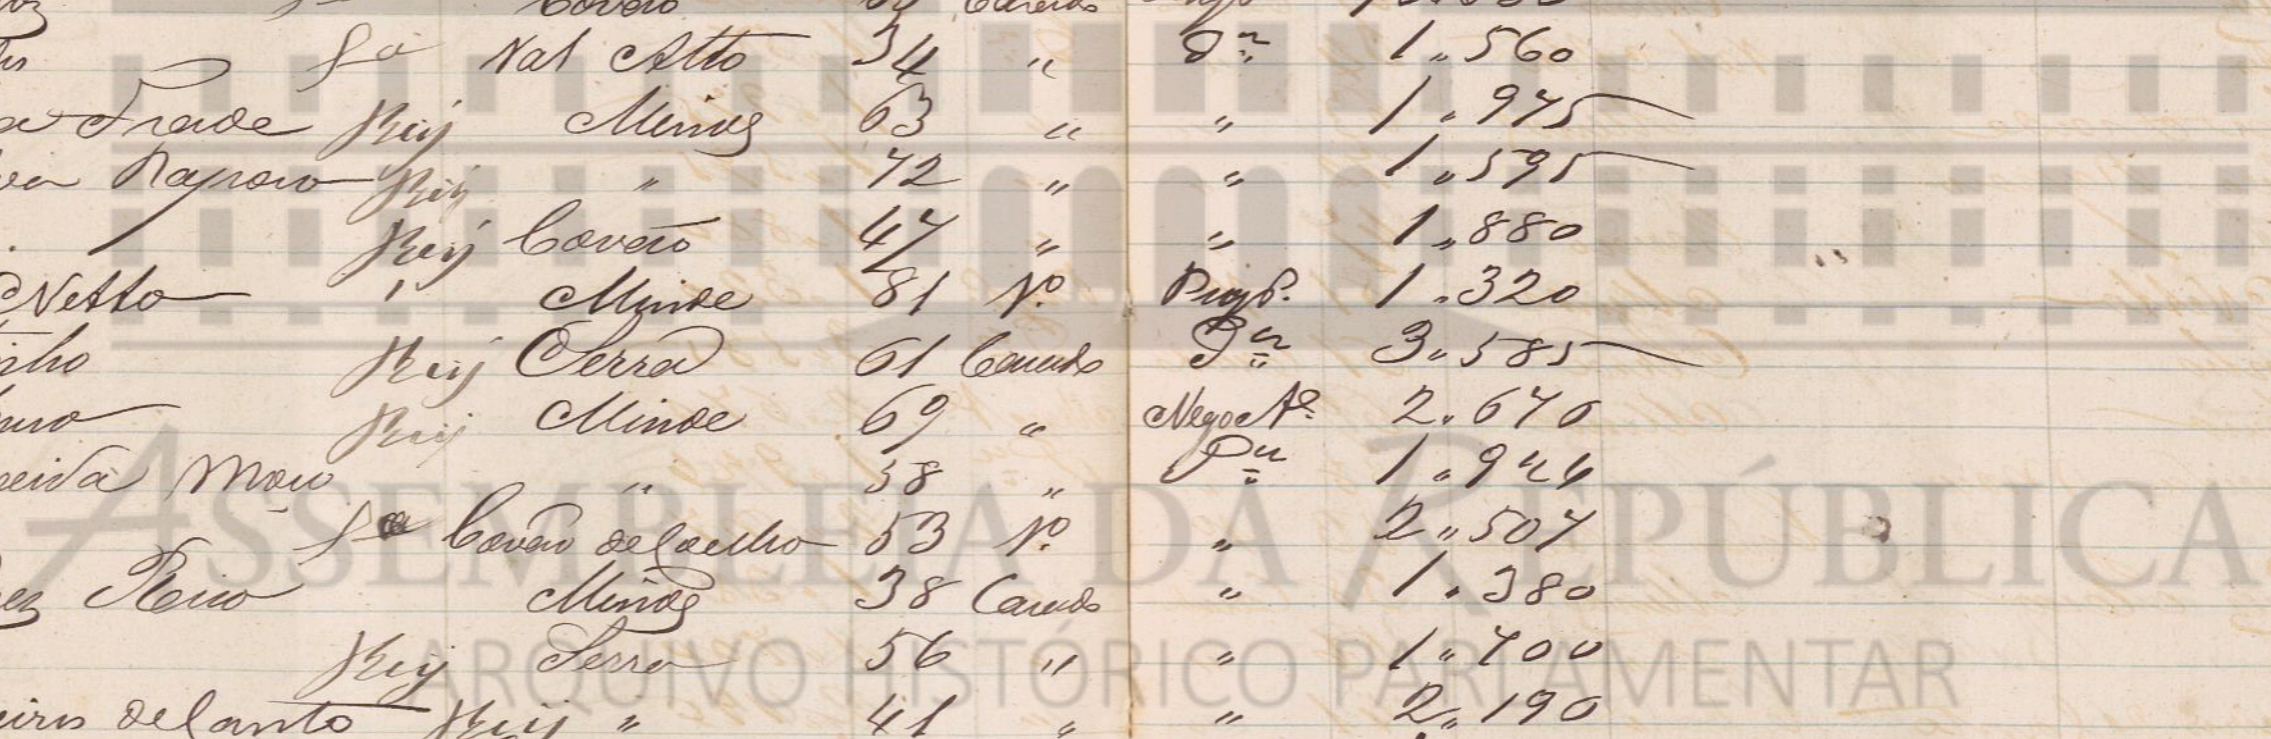 Covão Casado
Sa Val Alto 34 " Pr 1„560
Frade Reij Minde 63 " " 1.975
Raposo Reij " 72 " " 1„595
Reij Covão 47 " " 1„880
Netto " Minde 81 Vo. Propr. 1.320
inho Reij Serra 61 Casado Pr 3„585
Reij Minde 69 " Negocte 2„670
eida 38 " Pr
Sa Covão do Coelho 53 Vo. " 2„507
Minde 38 Casado " 1.380
Reij Serra 56 " " 1„700
do Canto Reij " 41 " " 2„190
ASSEMBLEIA DA REPÚBLICA
ARQUIVO HISTÓRICO PARLAMENTAR